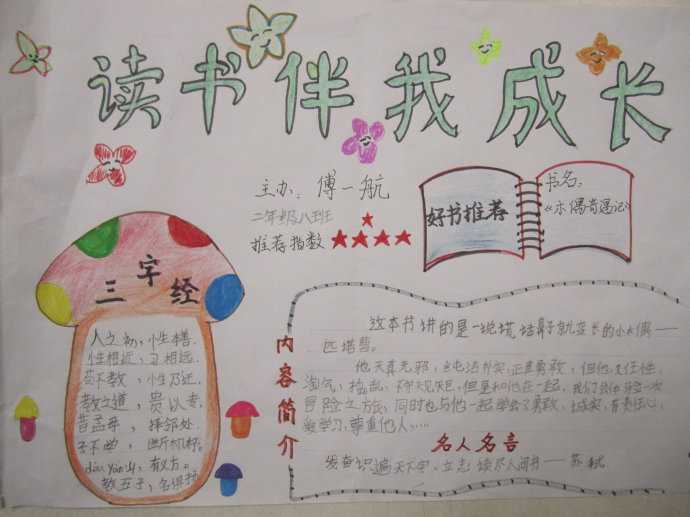 读书伴我成长
主办：傅一航
二年级八班
推荐指数
好书推荐
书名：
《木偶奇遇记》
三字经
人之初，性本善.
性相近，习相远.
苟不教，性乃迁.
教之道，贵以专.
昔孟母，择邻处.
子不学，断机杼.
dòu yān 山，有义方.
教五子，名俱扬
内容简介
这本书讲的是一说谎，鼻子就变长的小木偶——
匹诺曹.
他天真无邪，
正直勇敢，但他又任性，
淘气，捣乱，不守规矩，但里和他在一起，我们会体验一次
冒险之旅，同时也与他一起学会了勇敢，诚实，有责任心，
爱学习，尊重他人……
名人名言
发奋识遍天下字，立志读尽人间书——苏轼